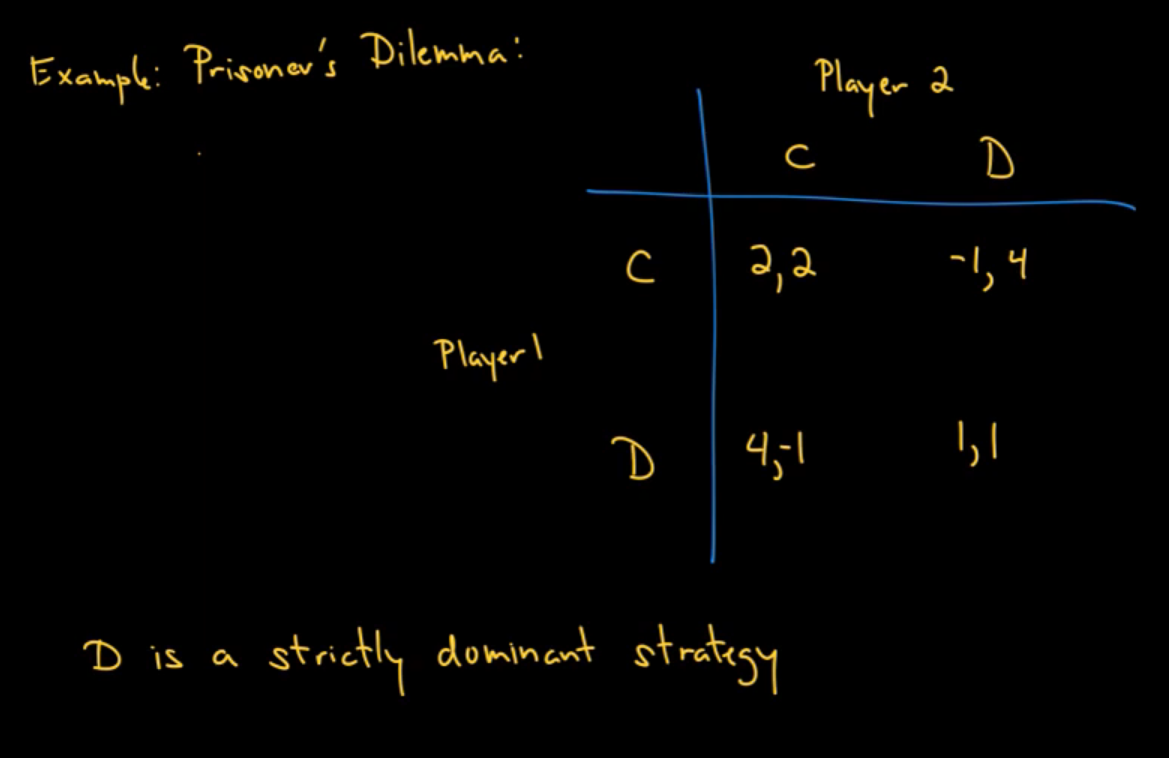 Example: Prisoner's Dilemma:
Player 2
C D
C 2,2 -1,4
Player 1
D 4,-1 1,1
D is a strictly dominant strategy